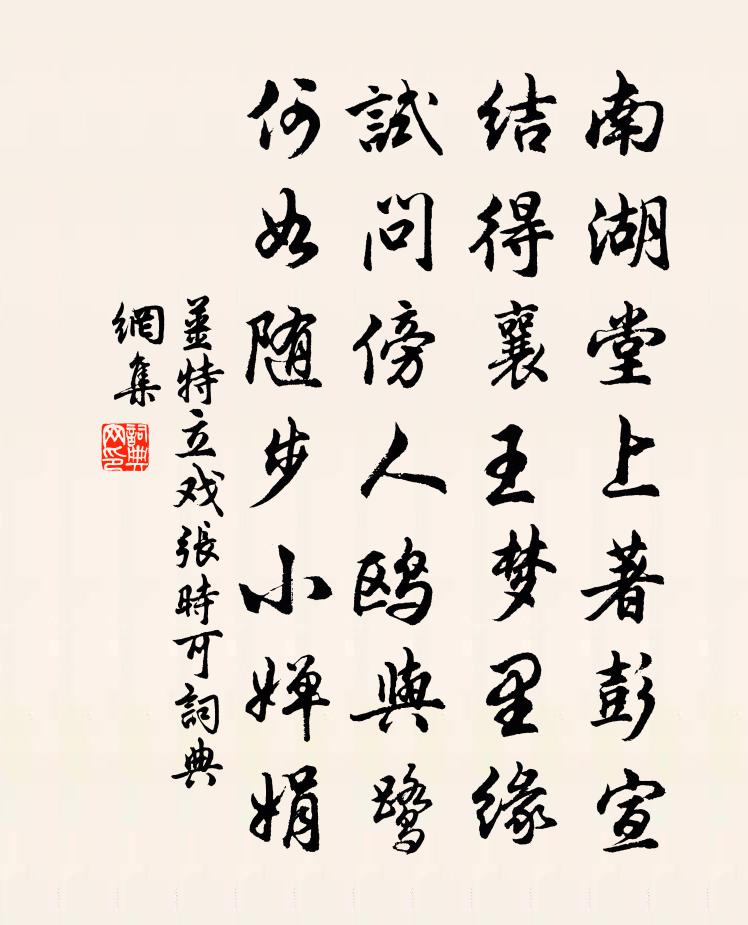 南湖堂上著彭宣
结得襄王梦里缘
試问傍人鸥與鹭
何如随步小婵娟
姜特立戏張時可詞典
網集
詞典
网印